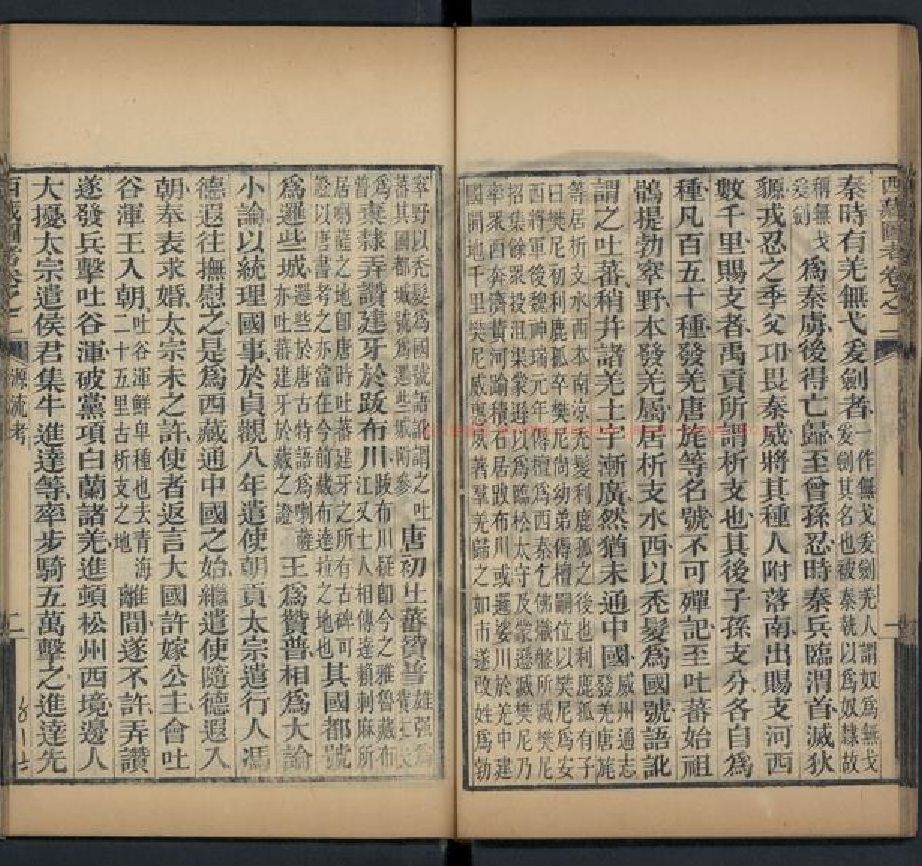 西藏圖考卷之二 一
秦時有羌無弋爰劍者
一作無戈爰劍羌人謂奴爲無戈
爰劍其名也被秦執以爲奴隸故
稱無戈
爰劍
爲秦虜後得亡歸至曾孫忍時秦兵臨渭首滅狄
豲戎忍之季父卭畏秦威將其種人附落南出賜支河西
數千里賜支者禹貢所謂析支也其後子孫支分各自爲
種凡百五十種發羌唐旄等名號不可殫記至吐蕃始祖
鶻提勃窣野本發羌屬居析支水西以禿髮爲國號語訛
謂之吐蕃稍幷諸羌土宇漸廣然猶未通中國
威州通志
發羌唐旄
等居析支水西本南凉禿髮利鹿孤之後也利鹿孤有子
曰樊尼初利鹿孤卒樊尼尚幼弟傉檀嗣位以樊尼爲安
西將軍後魏神瑞元年傉檀爲西秦乞佛熾盤所滅樊尼
招集餘眾投沮渠蒙遜以爲臨松太守及蒙遜滅樊尼乃
率眾西奔濟黃河踰積石居跋布川或邏娑川於羌中建
國開地千里樊尼威惠夙著羣羌歸之如市遂改姓爲勃
窣野以禿髮爲國號語訛謂之吐
蕃其國都城號爲邏些城
唐初吐蕃贊普
雄强爲
棄隸弄讚建牙於跋布川
跋布川疑卽今之雅魯藏布
江又土人相傳達賴刺麻所
居喇薩之地卽唐時吐蕃建牙之所有古碑可
證以唐書考之亦當在今前藏布達拉之地也
其國都號
爲邏些城
邏些於唐古特語爲喇薩
亦吐蕃建牙於藏之證
王爲贊普相爲大論
小論以統理國事於貞觀八年遣使朝貢太宗遣行人馮
德遐往撫慰之是爲西藏通中國之始繼遣使隨德遐入
朝奉表求婚太宗未之許使者返言大國許嫁公主會吐
谷渾王入朝
吐谷渾鮮卑種也去青海
二十五里古析支之地
離間遂不許弄讚
遂發兵擊吐谷渾破黨項白蘭諸羌進頓松州西境邊人
大擾太宗遣侯君集牛進達等率步騎五萬擊之進達先
西藏圖考卷之二 源流考 二